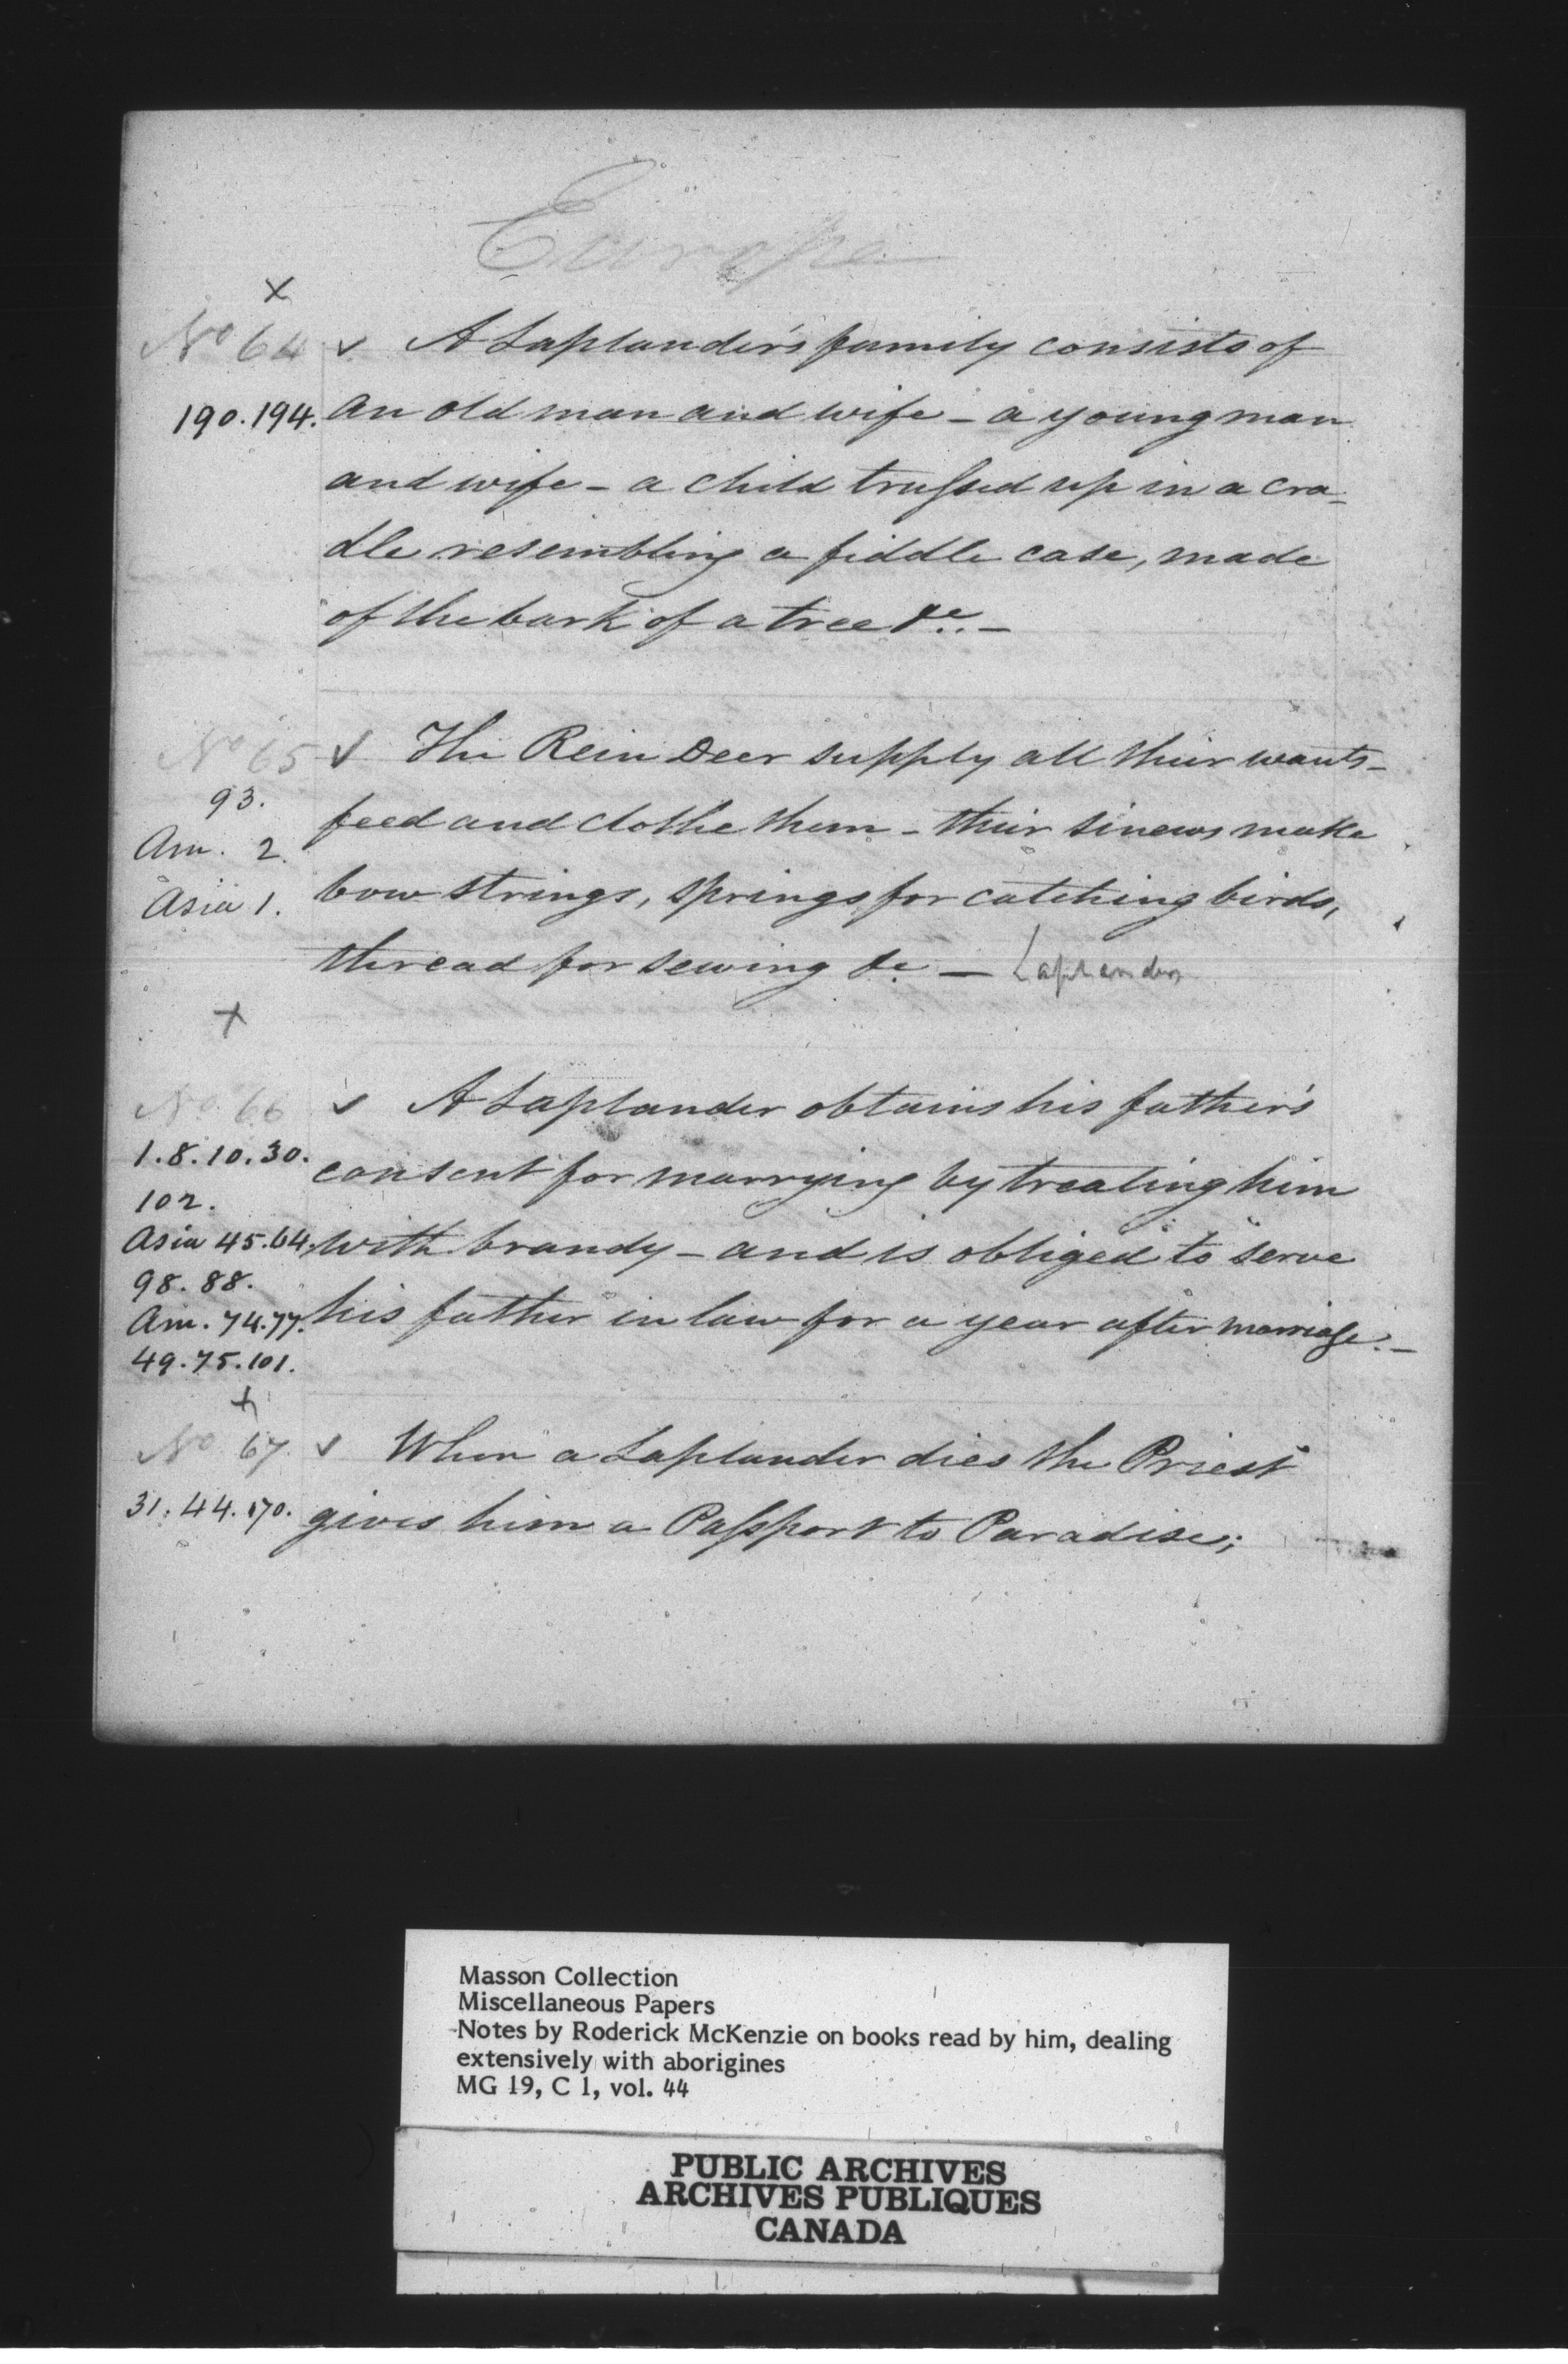 Europe
x
No 64 v A Laplander's family consists of
190.194. an old man and wife - a young man
and wife - a child trussed up in a cra-
dle resembling a fiddle case, made
of the bark of a tree &c. -
No 65 v The Rein Deer supply all their wants -
93.
feed and clothe them - their sinews make
Am. 2.
Asia 1. bow strings, springs for catching birds,
thread for sewing &c - Laplanders
x
No 66 v A Laplander obtains his father's
1.8.10.30.
consent for marrying by treating him
102.
Asia 45.64. with brandy - and is obliged to serve
98.88.
Am. 74.77. his father in law for a year after marriage. -
49.75.101.
x
No 67 v When a Laplander dies the Priest
31.44.170. gives him a Passport to Paradise;
Masson Collection
Miscellaneous Papers
Notes by Roderick McKenzie on books read by him, dealing
extensively with aborigines
MG 19, C 1, vol. 44
PUBLIC ARCHIVES
ARCHIVES PUBLIQUES
CANADA